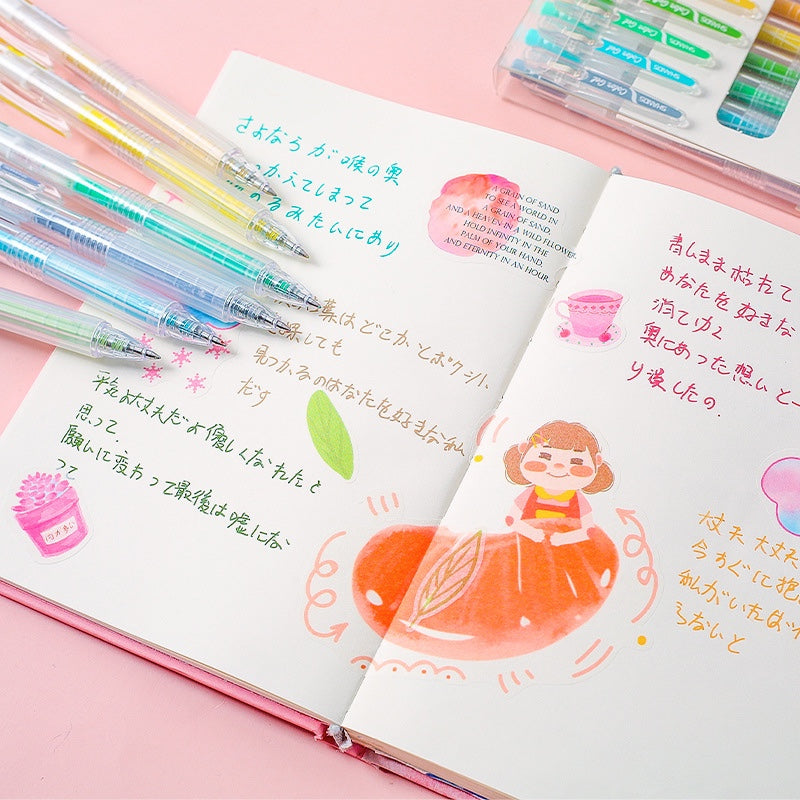 さよならが喉の奥
っかえてしまって
るみたいにあり
葉はどこかとポケット
しても
見つかるのはあなたを好きな私
だす
平気よ大丈夫だよ優しくなれたと
思って.
願いに変わって最後は嘘にな
って
A GRAIN OF SAND
TO SEE A WORLD IN
A GRAIN OF SAND,
AND A HEAVEN IN A WILD FLOWER
HOLD INFINITY IN THE
PALM OF YOUR HAND,
AND ETERNITY IN AN HOUR.
青しまま枯れて
あなたを好きな
消てゆく
奥にあった想いと一
り浸したの.
大丈夫 大丈夫
今すぐに抱
私がいれば
らないと
Color Gel SHANDS
Color Gel SHANDS
Color Gel SHANDS
Color Gel SHANDS